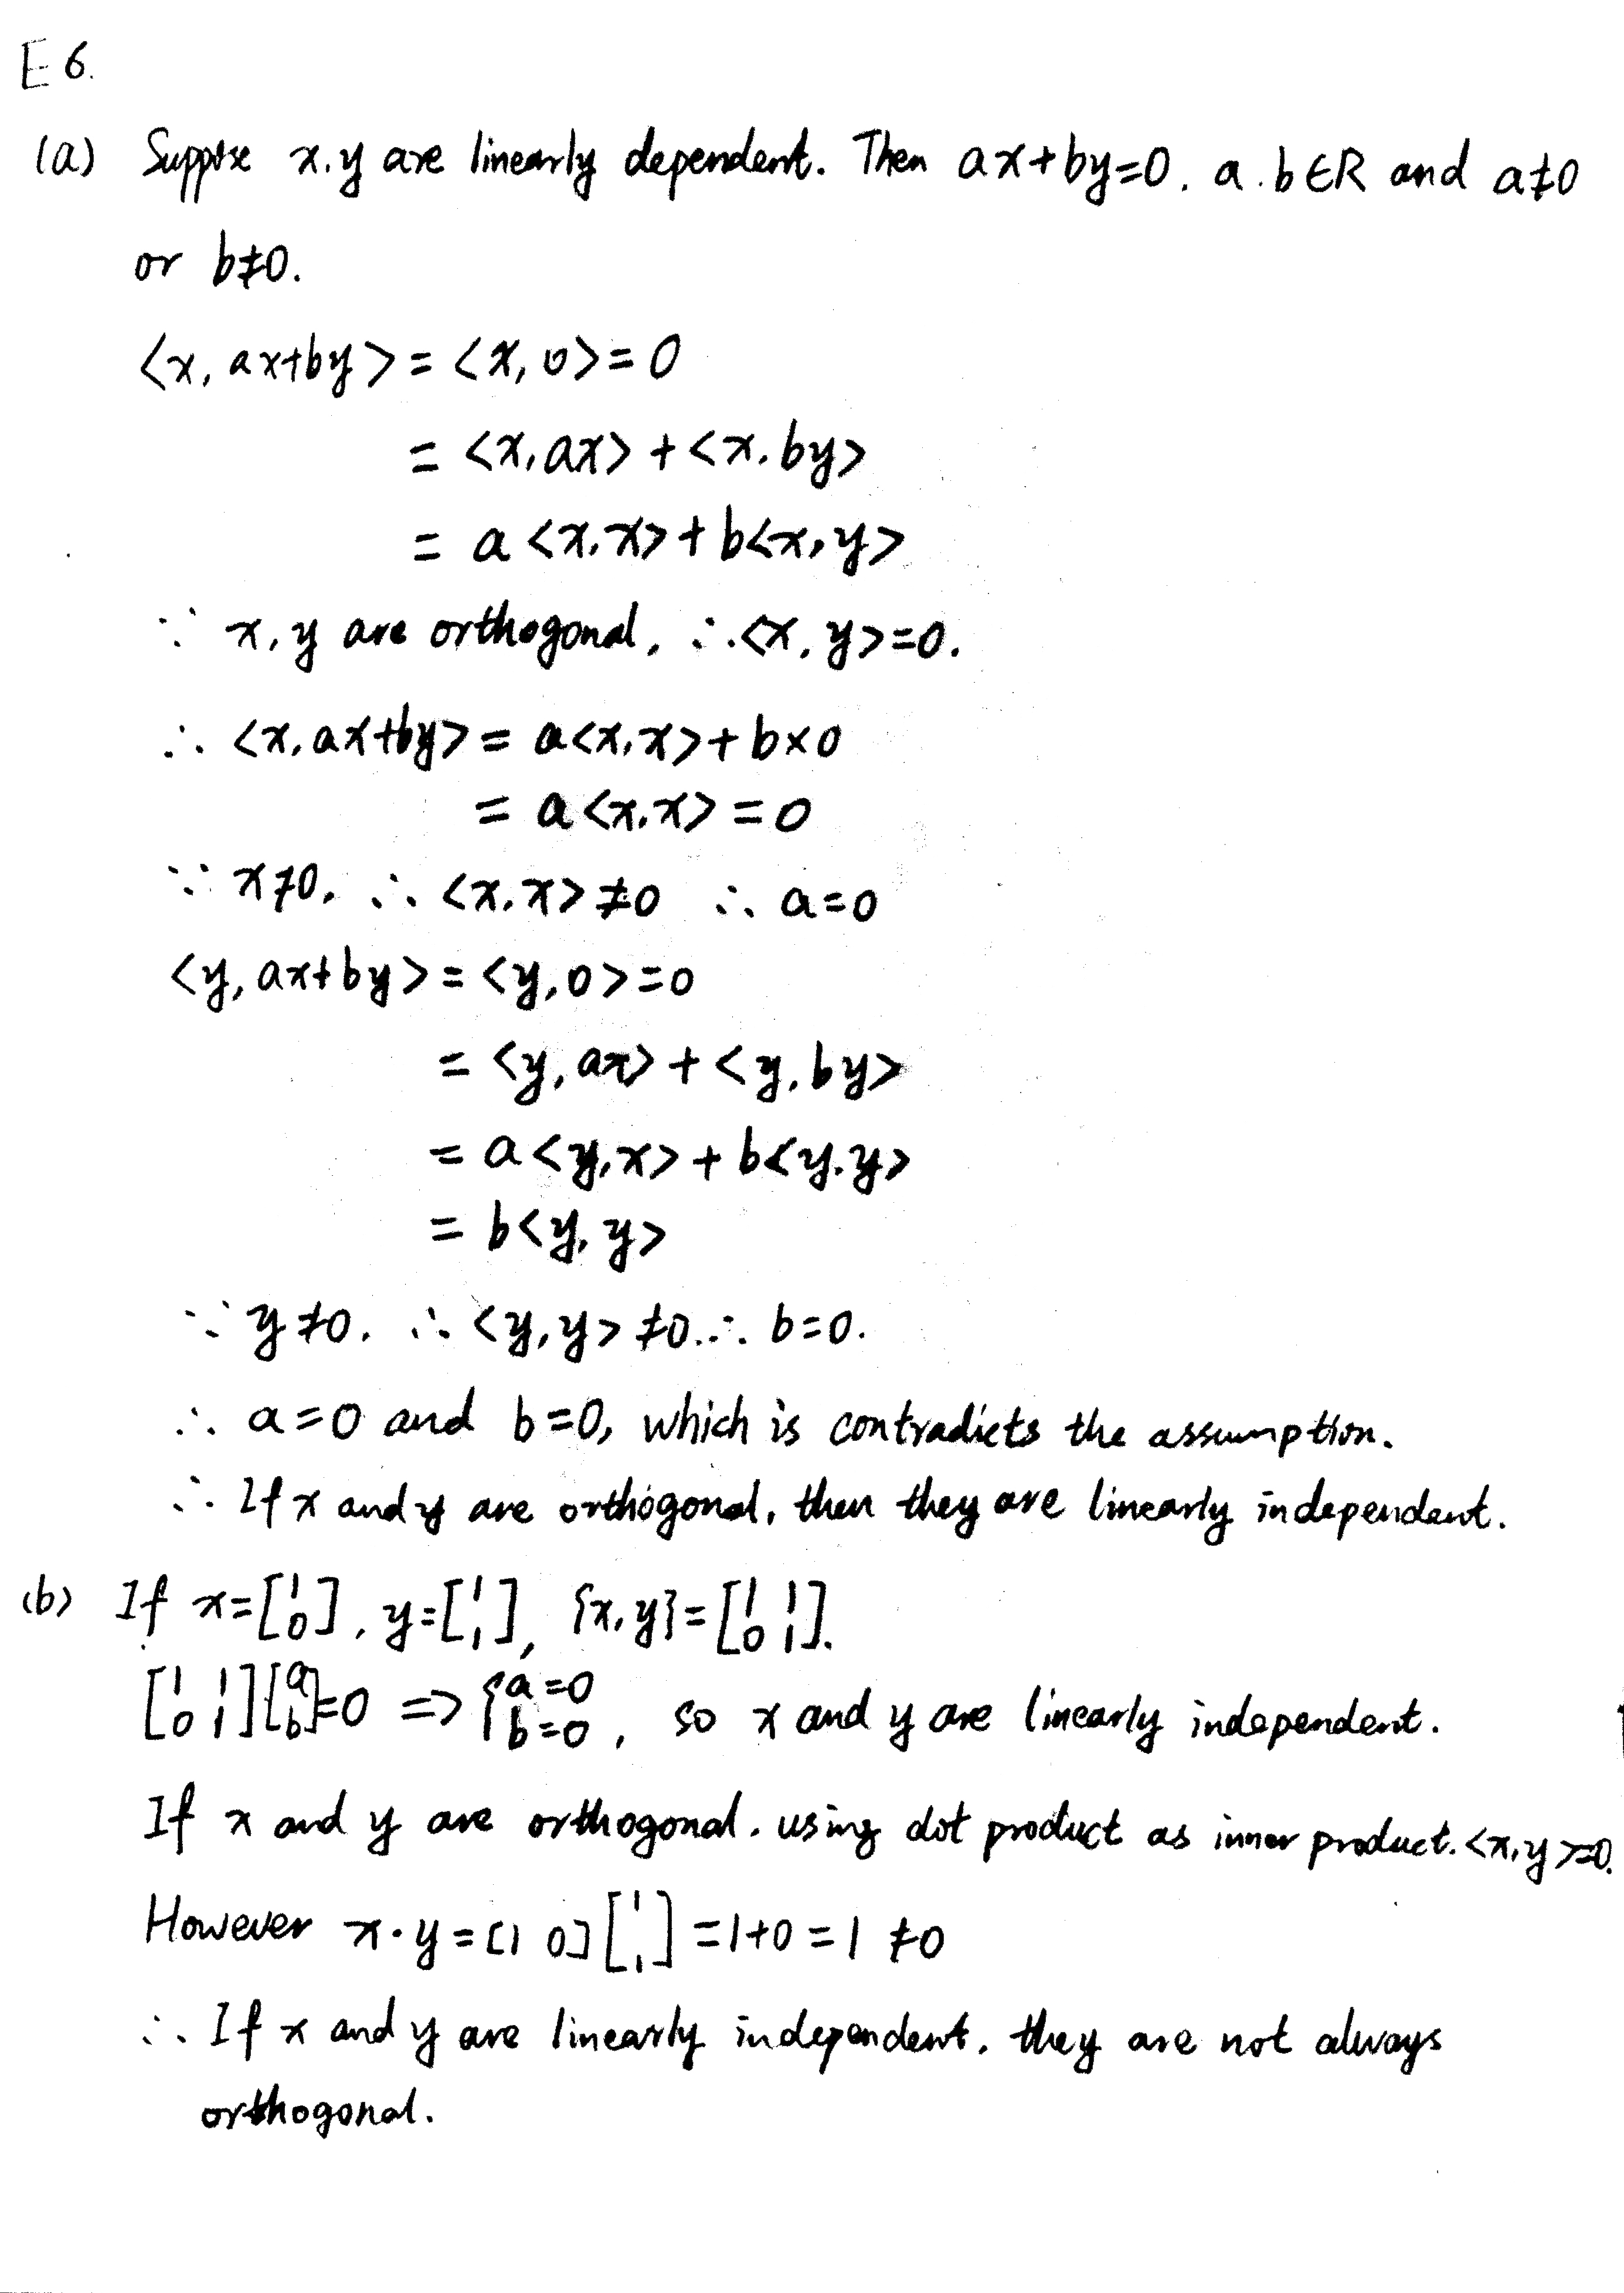 E 6.
(a) Suppose x, y are linearly dependent. Then ax+by=0. a.b∈R and a≠0
or b≠0.
<x, ax+by> = <x, 0> = 0
= <x, ax> + <x, by>
= a<x, x> + b<x, y>
∵ x, y are orthogonal, ∴ <x, y>=0.
∴ <x, ax+by> = a<x, x> + b×0
= a<x, x> = 0
∵ x≠0, ∴ <x, x> ≠0 ∴ a=0
<y, ax+by> = <y, 0> = 0
= <y, ax> + <y, by>
= a<y, x> + b<y, y>
= b<y, y>
∵ y≠0, ∴ <y, y> ≠0. ∴ b=0.
∴ a=0 and b=0, which is contradicts the assumption.
∴ If x and y are orthogonal, then they are linearly independent.
(b) If x=[1 0], y=[1 1], {x, y}=[1 1 0 1].
[1 1 0 1][a b]=0 => {a=0 b=0, so x and y are linearly independent.
If x and y are orthogonal. using dot product as inner product. <x, y>=0.
However x·y=[1 0][1 1]=1+0=1 ≠0
∴ If x and y are linearly independent, they are not always
orthogonal.